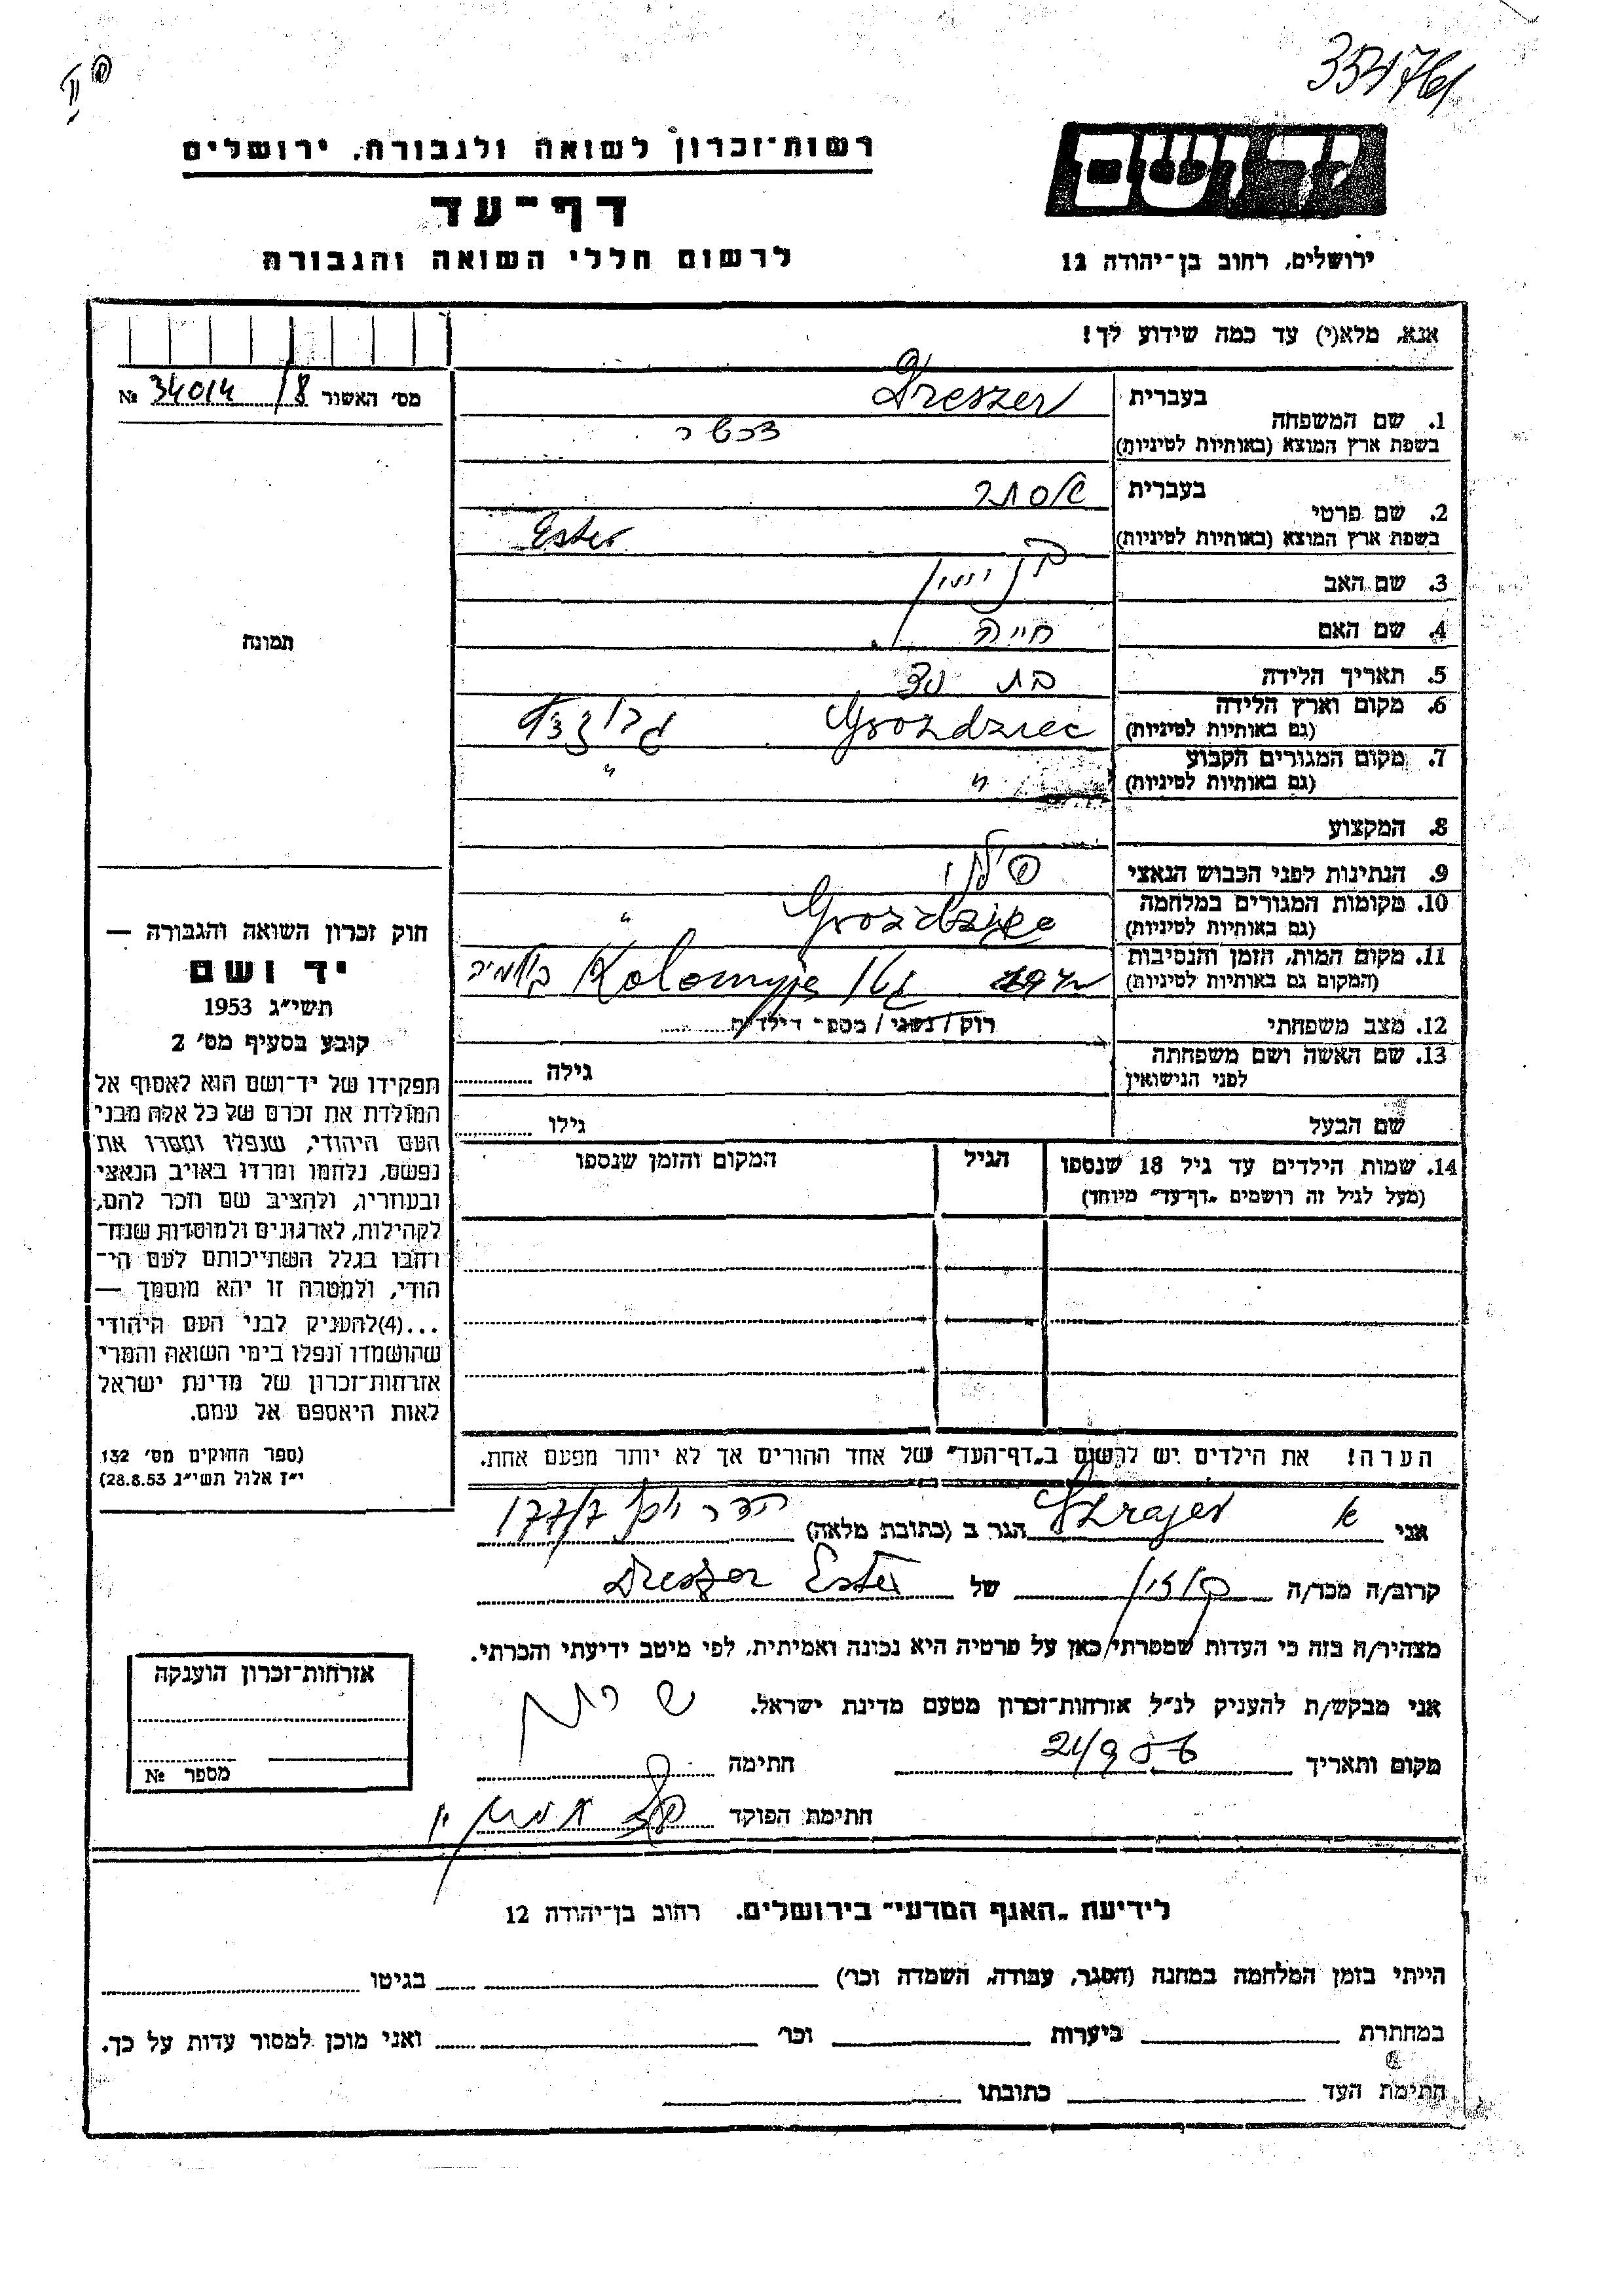 354761
רשות־זכרון לשואה ולגבורה, ירושלים
יד ושם
דף־עד
לרשום חללי השואה והגבורה
ירושלים, רחוב בן־יהודה 12
אנא, מלא(י) עד כמה שידוע לך!
מס׳ האשור 34014/8 №
1. שם המשפחה
בעברית Dreszer
בשפת ארץ המוצא (באותיות לטיניות) דרשר
2. שם פרטי
בעברית אסתר
בשפת ארץ המוצא (באותיות לטיניות) Ester
3. שם האב
4. שם האם חייה
5. תאריך הלידה בת
6. מקום וארץ הלידה
(גם באותיות לטיניות) Gwozdziec
7. מקום המגורים הקבוע
(גם באותיות לטיניות) " "
8. המקצוע
9. הנתינות לפני הכבוש הנאצי פולני
10. מקומות המגורים במלחמה
(גם באותיות לטיניות) "
11. מקום המות, הזמן והנסיבות
(המקום גם באותיות לטיניות) גטו Kolomyja
12. מצב משפחתי רוק / נשוי / מספר הילדים
13. שם האשה ושם משפחתה
לפני הנישואין
גילה
שם הבעל
גילו
14. שמות הילדים עד גיל 18 שנספו
(מעל לגיל זה רושמים „דף־עד״ מיוחד)
הגיל
המקום והזמן שנספו
הערה! את הילדים יש לרשום ב„דף־העד״ של אחד ההורים אך לא יותר מפעם אחת.
תמונה
חוק זכרון השואה והגבורה —
יד ושם
תשי״ג 1953
קובע בסעיף מס׳ 2
תפקידו של יד־ושם הוא לאסוף אל
המולדת את זכרם של כל אלה מבני
העם היהודי, שנפלו ומסרו את
נפשם, נלחמו ומרדו באויב הנאצי
ובעוזריו, ולהציב שם וזכר להם,
לקהילות, לארגונים ולמוסדות שנח־
רחבו בגלל השתייכותם לעם הי־
הודי, ולמטרה זו יהא מוסמך —
...(4)להעניק לבני העם היהודי
שהושמדו ונפלו בימי השואה והמרי
אזרחות־זכרון של מדינת ישראל
לאות היאספם אל עמם.
(ספר החוקים מס׳ 132
י״ז אלול תשי״ג 28.8.53)
אני Szrajer הגר ב (כתובת מלאה)
קרוב/ה מכר/ה של Dreszer Ester
מצהיר/ה בזה כי העדות שמסרתי כאן על פרטיה היא נכונה ואמיתית, לפי מיטב ידיעתי והכרתי.
אני מבקש/ת להעניק לנ״ל אזרחות־זכרון מטעם מדינת ישראל.
מקום ותאריך 21/9 56 חתימה
חתימת הפוקד
אזרחות־זכרון הוענקה
מספר №
לידיעת „האגף המדעי״ בירושלים. רחוב בן־יהודה 12
הייתי בזמן המלחמה במחנה (הסגר, עבודה, השמדה וכו׳) בגיטו
במחתרת ביערות וכו׳ ואני מוכן למסור עדות על כך.
חתימת העד כתובתו